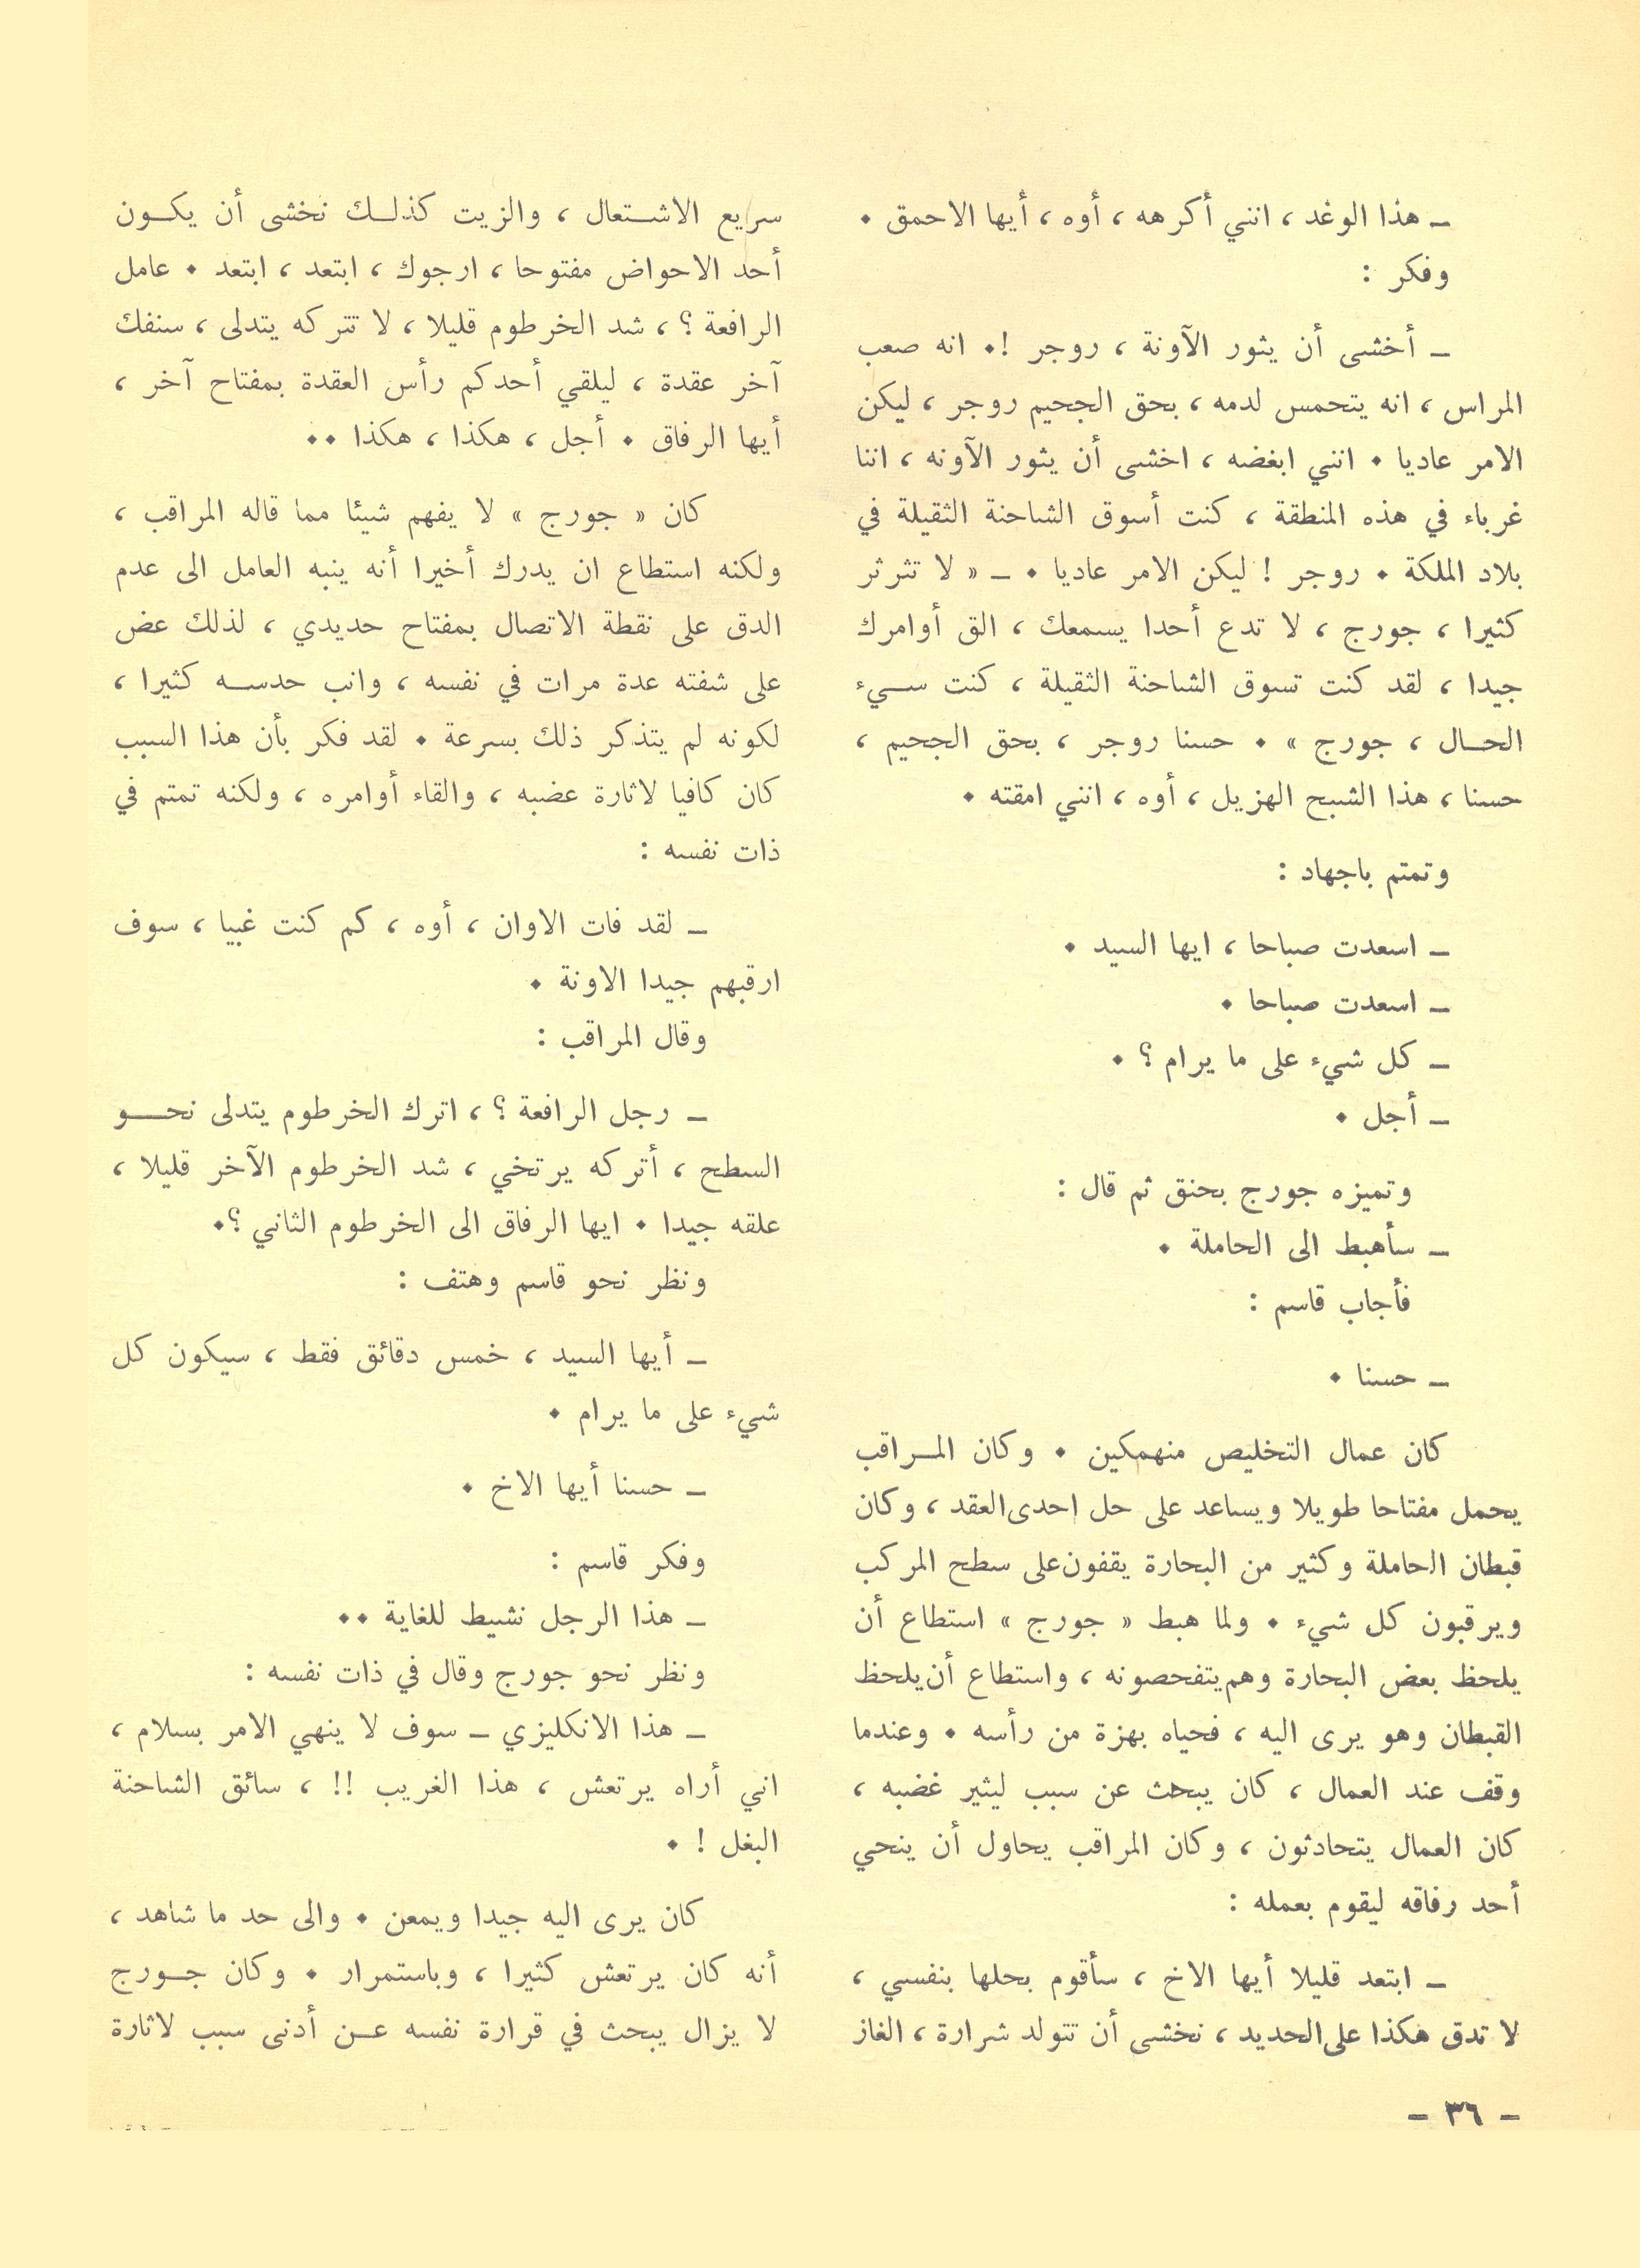 ـ هذا الوغد ، انني أكرهه ، أوه ، أيها الاحمق .
وفكر :
ـ أخشى أن يثور الآونة ، روجر !. انه صعب
المراس ، انه يتحمس لدمه ، بحق الجحيم روجر ، ليكن
الامر عاديا . انني ابغضه ، اخشى أن يثور الآونه ، اننا
غرباء في هذه المنطقة ، كنت أسوق الشاحنة الثقيلة في
بلاد الملكة . روجر ! ليكن الامر عاديا . ـ « لا تثرثر
كثيرا ، جورج ، لا تدع أحدا يسمعك ، الق أوامرك
جيدا ، لقد كنت تسوق الشاحنة الثقيلة ، كنت سيء
الحال ، جورج » . حسنا روجر ، بحق الجحيم ،
حسنا ، هذا الشبح الهزيل ، أوه ، انني امقته .
وتمتم باجهاد :
ـ اسعدت صباحا ، ايها السيد .
ـ اسعدت صباحا .
ـ كل شيء على ما يرام ؟ .
ـ أجل .
وتميزه جورج بحنق ثم قال :
ـ سأهبط الى الحاملة .
فأجاب قاسم :
ـ حسنا .
كان عمال التخليص منهمكين . وكان المراقب
يحمل مفتاحا طويلا ويساعد على حل احدى العقد ، وكان
قبطان الحاملة وكثير من البحارة يقفون على سطح المركب
ويرقبون كل شيء . ولما هبط « جورج » استطاع أن
يلحظ بعض البحارة وهم يتفحصونه ، واستطاع أن يلحظ
القبطان وهو يرى اليه ، فحياه بهزة من رأسه . وعندما
وقف عند العمال ، كان يبحث عن سبب ليثير غضبه ،
كان العمال يتحادثون ، وكان المراقب يحاول أن ينحي
أحد رفاقه ليقوم بعمله :
ـ ابتعد قليلا أيها الاخ ، سأقوم بحلها بنفسي ،
لا تدق هكذا على الحديد ، نخشى أن تتولد شرارة ، الغاز
سريع الاشتعال ، والزيت كذلك نخشى أن يكون
أحد الاحواض مفتوحا ، ارجوك ، ابتعد ، ابتعد . عامل
الرافعة ؟ ، شد الخرطوم قليلا ، لا تتركه يتدلى ، سنفك
آخر عقدة ، ليلقي أحدكم رأس العقدة بمفتاح آخر ،
أيها الرفاق . أجل ، هكذا ، هكذا ..
كان « جورج » لا يفهم شيئا مما قاله المراقب ،
ولكنه استطاع ان يدرك أخيرا أنه ينبه العامل الى عدم
الدق على نقطة الاتصال بمفتاح حديدي ، لذلك عض
على شفته عدة مرات في نفسه ، وانب حدسه كثيرا ،
لكونه لم يتذكر ذلك بسرعة . لقد فكر بأن هذا السبب
كان كافيا لاثارة عضبه ، والقاء أوامره ، ولكنه تمتم في
ذات نفسه :
ـ لقد فات الاوان ، أوه ، كم كنت غبيا ، سوف
ارقبهم جيدا الاونة .
وقال المراقب :
ـ رجل الرافعة ؟ ، اترك الخرطوم يتدلى نحو
السطح ، أتركه يرتخي ، شد الخرطوم الآخر قليلا ،
علقه جيدا . ايها الرفاق الى الخرطوم الثاني ؟.
ونظر نحو قاسم وهتف :
ـ أيها السيد ، خمس دقائق فقط ، سيكون كل
شيء على ما يرام .
ـ حسنا أيها الاخ .
وفكر قاسم :
ـ هذا الرجل نشيط للغاية ..
ونظر نحو جورج وقال في ذات نفسه :
ـ هذا الانكليزي ـ سوف لا ينهي الامر بسلام ،
اني أراه يرتعش ، هذا الغريب !! ، سائق الشاحنة
البغل ! .
كان يرى اليه جيدا ويمعن . والى حد ما شاهد ،
أنه كان يرتعش كثيرا ، وباستمرار . وكان جورج
لا يزال يبحث في قرارة نفسه عن أدنى سبب لاثارة
ـ ٣٦ ـ